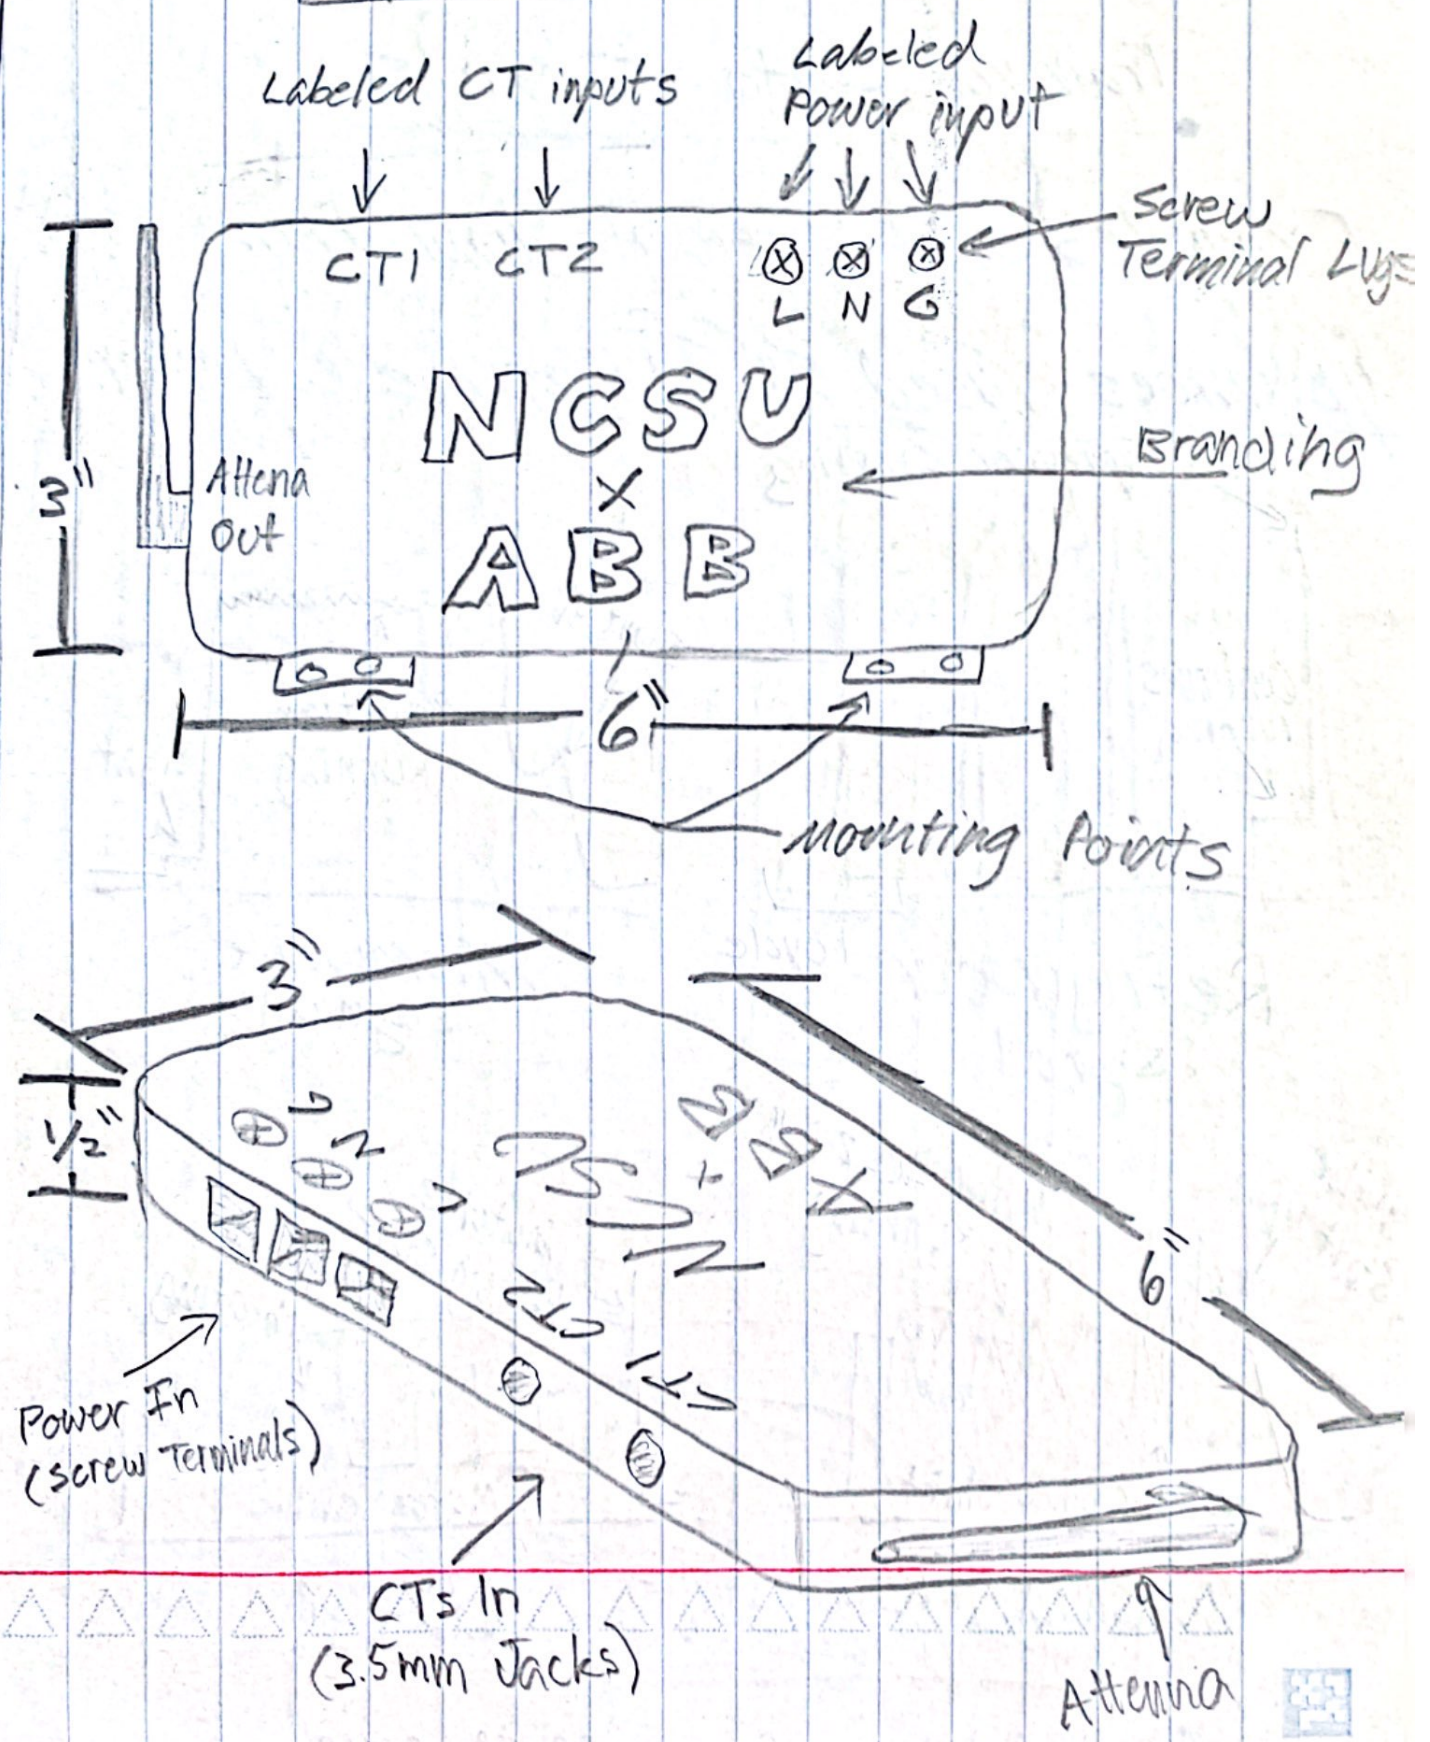 Labeled CT inputs
Labeled
Power input
Screw
Terminal Lugs
CT1 CT2
L N G
3"
NCSU
X
ABB
Branding
Attena
Out
6"
Mounting Points
3"
1/2"
L
N
G
ABB
X
+
NCSU
CT2
CT1
6"
Power In
(Screw Terminals)
CTs In
(3.5mm Jacks)
Attenna